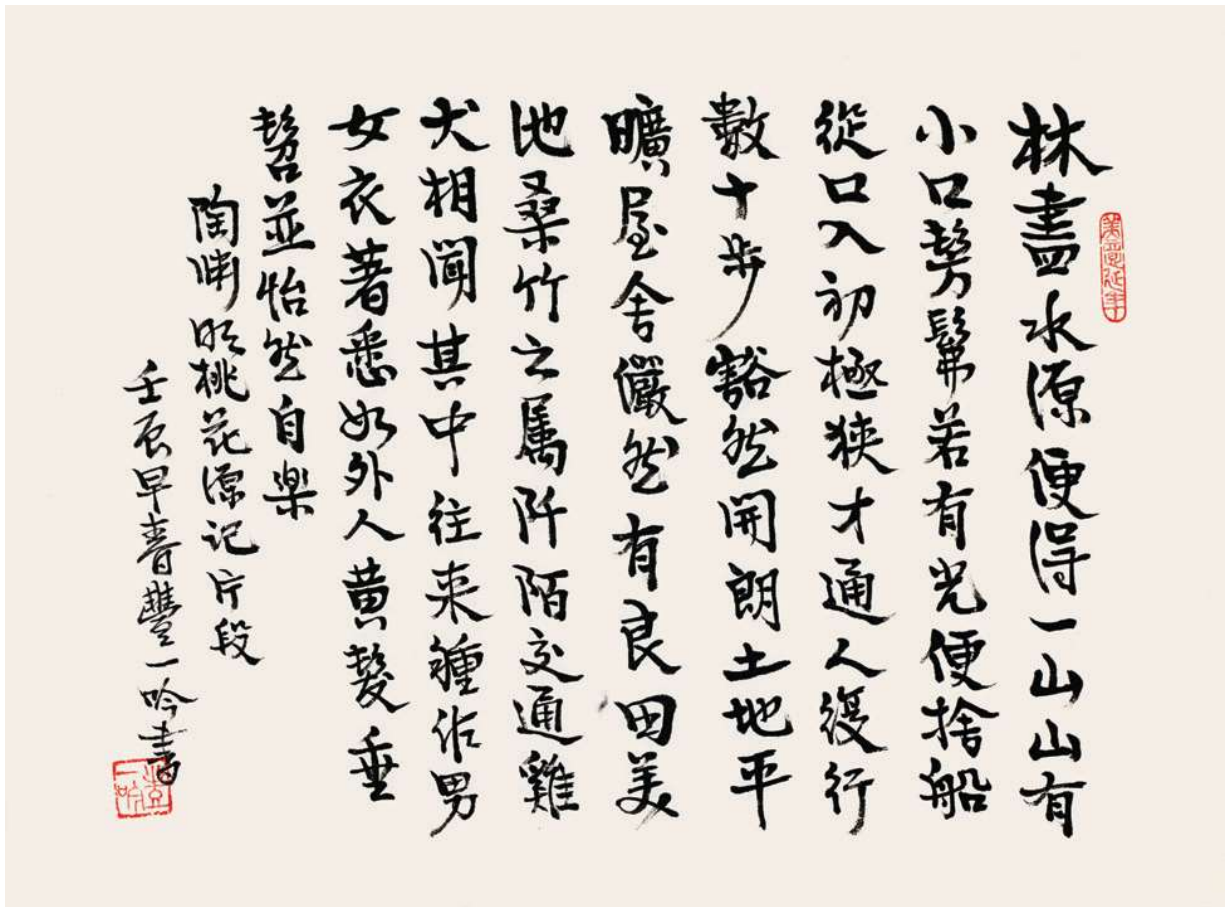 林盡水源便得一山山有
小口髣髴若有光便捨船
從口入初極狹才通人復行
數十步豁然開朗土地平
曠屋舍儼然有良田美
池桑竹之屬阡陌交通雞
犬相聞其中往来種作男
女衣著悉如外人黄髮垂
髫並怡然自樂
陶淵明桃花源记片段
壬辰早春豐一吟書